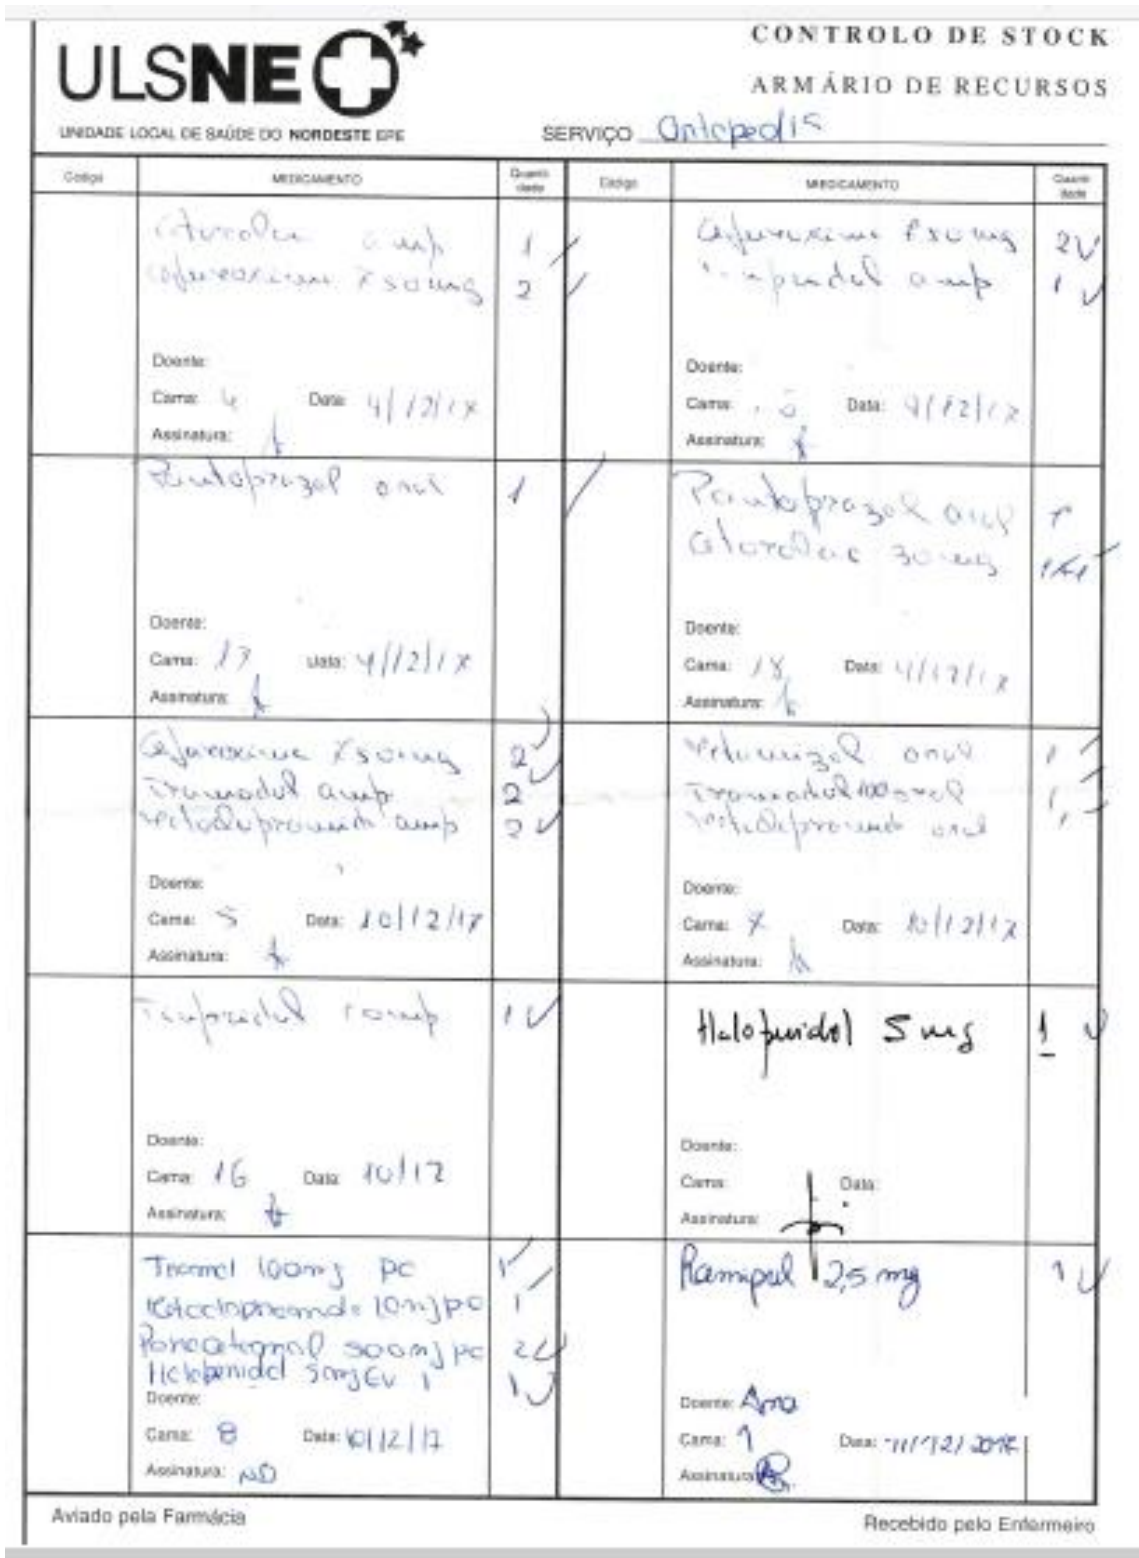 ULSNE
UNIDADE LOCAL DE SAÚDE DO NORDESTE EPE
CONTROLO DE STOCK
ARMÁRIO DE RECURSOS
SERVIÇO Ortopedia
Código MEDICAMENTO Quantidade Código MEDICAMENTO Quantidade
amp 1
Cefuroxime 750mg 2
Doente:
Cama: 4 Data: 4/12/17
Assinatura:
Cefuroxime 750mg 2
amp 1
Doente:
Cama: Data: 4/12/17
Assinatura:
Pantoprazol oral 1
Doente:
Cama: 17 Data: 4/12/17
Assinatura:
Pantoprazol oral
30 mg
Doente:
Cama: 18 Data: 4/12/17
Assinatura:
Cefuroxime 750mg 2
Tramadol amp 2
amp 2
Doente:
Cama: 5 Data: 10/12/17
Assinatura:
oral 1
Tramadol 100 oral 1
oral
Doente:
Cama: 7 Data: 10/12/17
Assinatura:
1
Doente:
Cama: 16 Data: 10/12
Assinatura:
Haloperidol 5 mg 1
Doente:
Cama: Data:
Assinatura:
100mg PO 1
10mg PO 1
Paracetamol 500mg PO 2
Haloperidol 5mg EV 1 1
Doente:
Cama: 8 Data: 10/12/17
Assinatura: ND
Ramipril 2,5 mg 1
Doente: Ana
Cama: 1 Data: 11/12/2017
Assinatura:
Aviado pela Farmácia
Recebido pelo Enfermeiro